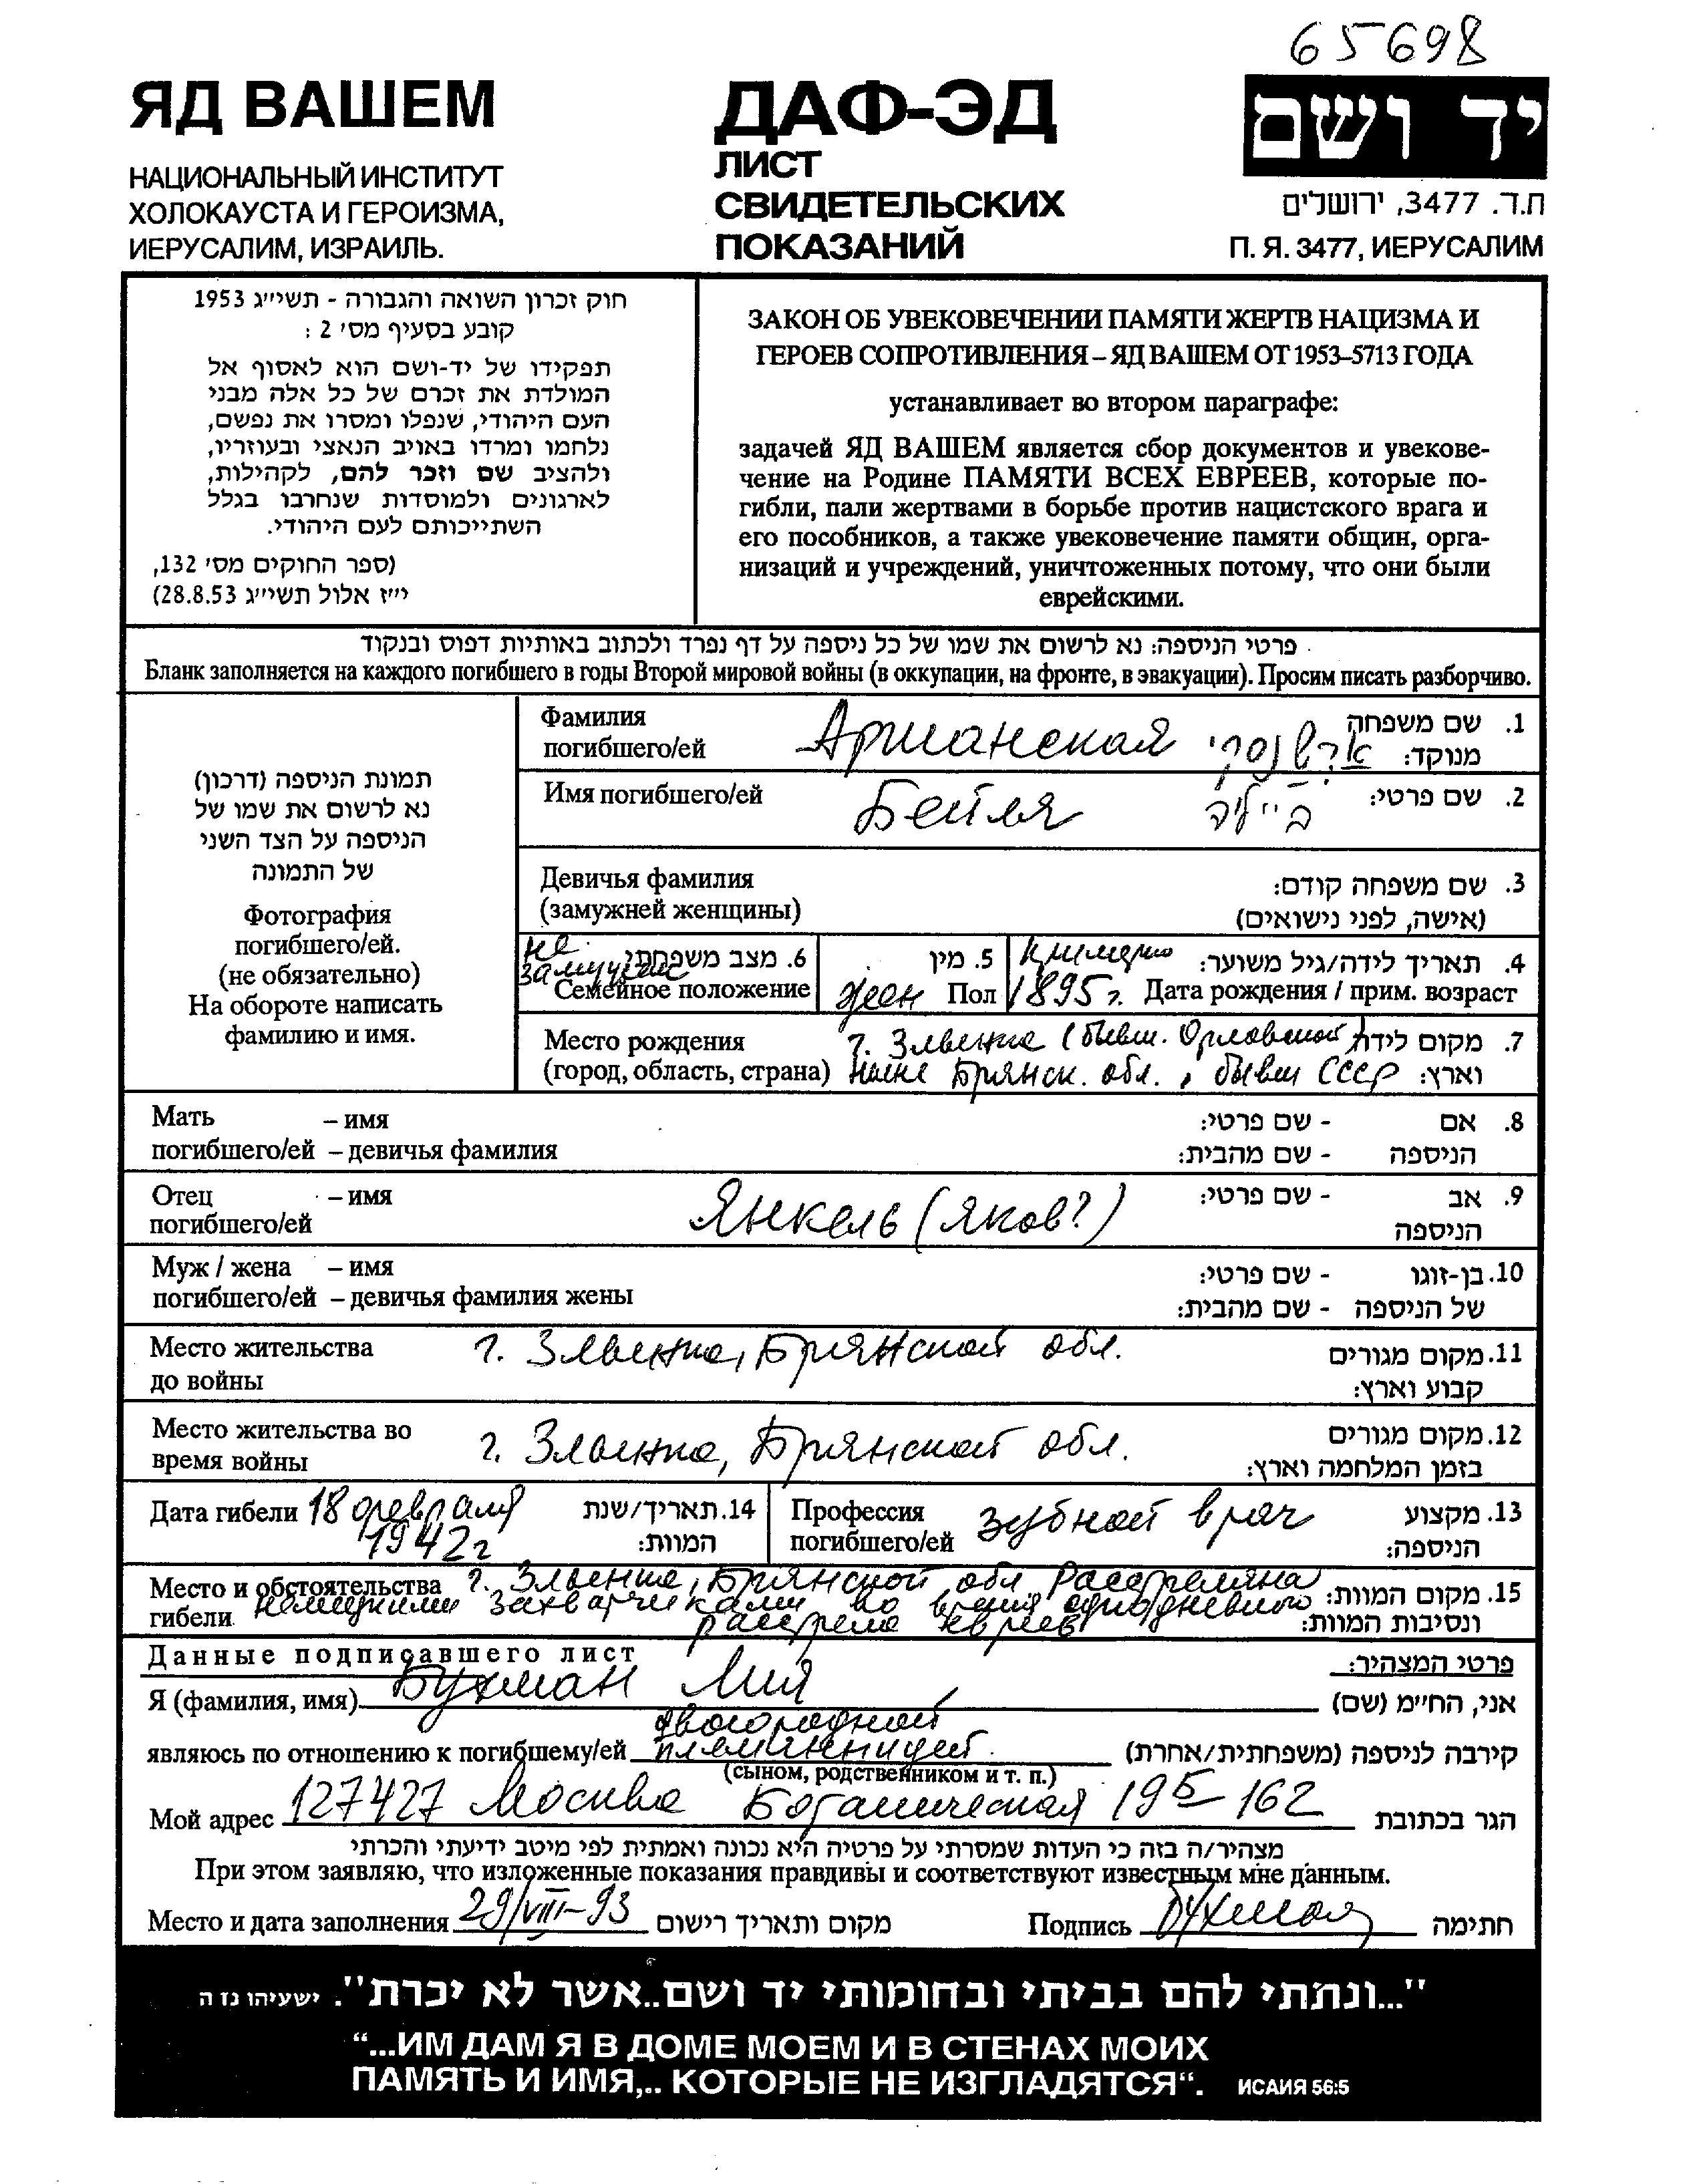 65698
ЯД ВАШЕМ
НАЦИОНАЛЬНЫЙ ИНСТИТУТ
ХОЛОКАУСТА И ГЕРОИЗМА,
ИЕРУСАЛИМ, ИЗРАИЛЬ.
ДАФ-ЭД
ЛИСТ
СВИДЕТЕЛЬСКИХ
ПОКАЗАНИЙ
יד ושם
ת.ד. 3477, ירושלים
П. Я. 3477, ИЕРУСАЛИМ
חוק זכרון השואה והגבורה - תשי״ג 1953
קובע בסעיף מס׳ 2 :
תפקידו של יד-ושם הוא לאסוף אל
המולדת את זכרם של כל אלה מבני
העם היהודי, שנפלו ומסרו את נפשם,
נלחמו ומרדו באויב הנאצי ובעוזריו,
ולהציב שם וזכר להם, לקהילות,
לארגונים ולמוסדות שנחרבו בגלל
השתייכותם לעם היהודי.
(ספר החוקים מס׳ 132,
י״ז אלול תשי״ג 28.8.53)
ЗАКОН ОБ УВЕКОВЕЧЕНИИ ПАМЯТИ ЖЕРТВ НАЦИЗМА И
ГЕРОЕВ СОПРОТИВЛЕНИЯ – ЯД ВАШЕМ ОТ 1953–5713 ГОДА
устанавливает во втором параграфе:
задачей ЯД ВАШЕМ является сбор документов и увекове-
чение на Родине ПАМЯТИ ВСЕХ ЕВРЕЕВ, которые по-
гибли, пали жертвами в борьбе против нацистского врага и
его пособников, а также увековечение памяти общин, орга-
низаций и учреждений, уничтоженных потому, что они были
еврейскими.
פרטי הניספה: נא לרשום את שמו של כל ניספה על דף נפרד ולכתוב באותיות דפוס ובנקוד
Бланк заполняется на каждого погибшего в годы Второй мировой войны (в оккупации, на фронте, в эвакуации). Просим писать разборчиво.
תמונת הניספה (דרכון)
נא לרשום את שמו של
הניספה על הצד השני
של התמונה
Фотография
погибшего/ей.
(не обязательно)
На обороте написать
фамилию и имя.
Фамилия Аршанская ארשנסקי 1. שם משפחה
погибшего/ей מנוקד:
Имя погибшего/ей Бейля בייליה 2. שם פרטי:
Девичья фамилия 3. שם משפחה קודם:
(замужней женщины) (אישה, לפני נישואים)
не замужем 6. מצב משפחתי
Семейное положение
5. מין
жен Пол
примерно 4. תאריך לידה/גיל משוער:
1895г. Дата рождения / прим. возраст
Место рождения г. Злынка (бывш. Орловской) 7. מקום לידה
(город, область, страна) ныне Брянск. обл., бывш СССР וארץ:
Мать – имя 8. אם - שם פרטי:
погибшего/ей – девичья фамилия הניספה - שם מהבית:
Отец – имя Янкель (Яков?) 9. אב - שם פרטי:
погибшего/ей הניספה
Муж / жена – имя 10. בן-זוגו - שם פרטי:
погибшего/ей – девичья фамилия жены של הניספה - שם מהבית:
Место жительства г. Злынка, Брянской обл. 11. מקום מגורים
до войны קבוע וארץ:
Место жительства во г. Злынка, Брянской обл. 12. מקום מגורים
время войны בזמן המלחמה וארץ:
Дата гибели 18 февраля 14. תאריך/שנת
1942г המוות:
Профессия зубной врач 13. מקצוע
погибшего/ей הניספה:
Место и обстоятельства г. Злынка, Брянской обл. Расстреляна 15. מקום המוות:
гибели немецкими захватчиками во время однодневного
расстрела евреев ונסיבות המוות:
Данные подписавшего лист פרטי המצהיר:
Я (фамилия, имя) Бухман Лия אני, החי״מ (שם)
двоюродной
являюсь по отношению к погибшему/ей племянницей קירבה לניספה (משפחתית/אחרת)
(сыном, родственником и т. п.)
Мой адрес 127427 Москва Ботаническая 19Б 162 הגר בכתובת
מצהיר/ה בזה כי העדות שמסרתי על פרטיה היא נכונה ואמתית לפי מיטב ידיעתי והכרתי
При этом заявляю, что изложенные показания правдивы и соответствуют известным мне данным.
Место и дата заполнения 29/VIII-93 מקום ותאריך רישום Подпись Бухман חתימה
"...ונתתי להם בביתי ובחומותי יד ושם..אשר לא יכרת". ישעיהו נז ה
“...ИМ ДАМ Я В ДОМЕ МОЕМ И В СТЕНАХ МОИХ
ПАМЯТЬ И ИМЯ,.. КОТОРЫЕ НЕ ИЗГЛАДЯТСЯ“. ИСАИЯ 56:5